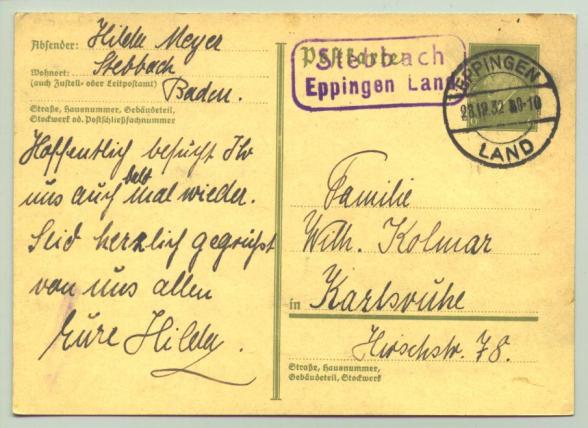 Absender: Hilda Meyer
Wohnort: Stebbach
(auch Zustell- oder Leitpostamt) Baden.
Straße, Hausnummer, Gebäudeteil,
Stockwerk od. Postschließfachnummer
Hoffentlich besucht Ihr
uns auch bald mal wieder.
Seid herzlich gegrüßt
von uns allen
Eure Hilda.
Postkarte
Stebbach
Eppingen Land
EPPINGEN
28.12.32 9-10
LAND
Familie
Wilh. Kolmar
in Karlsruhe
Hirschstr. 78.
Straße, Hausnummer,
Gebäudeteil, Stockwerk